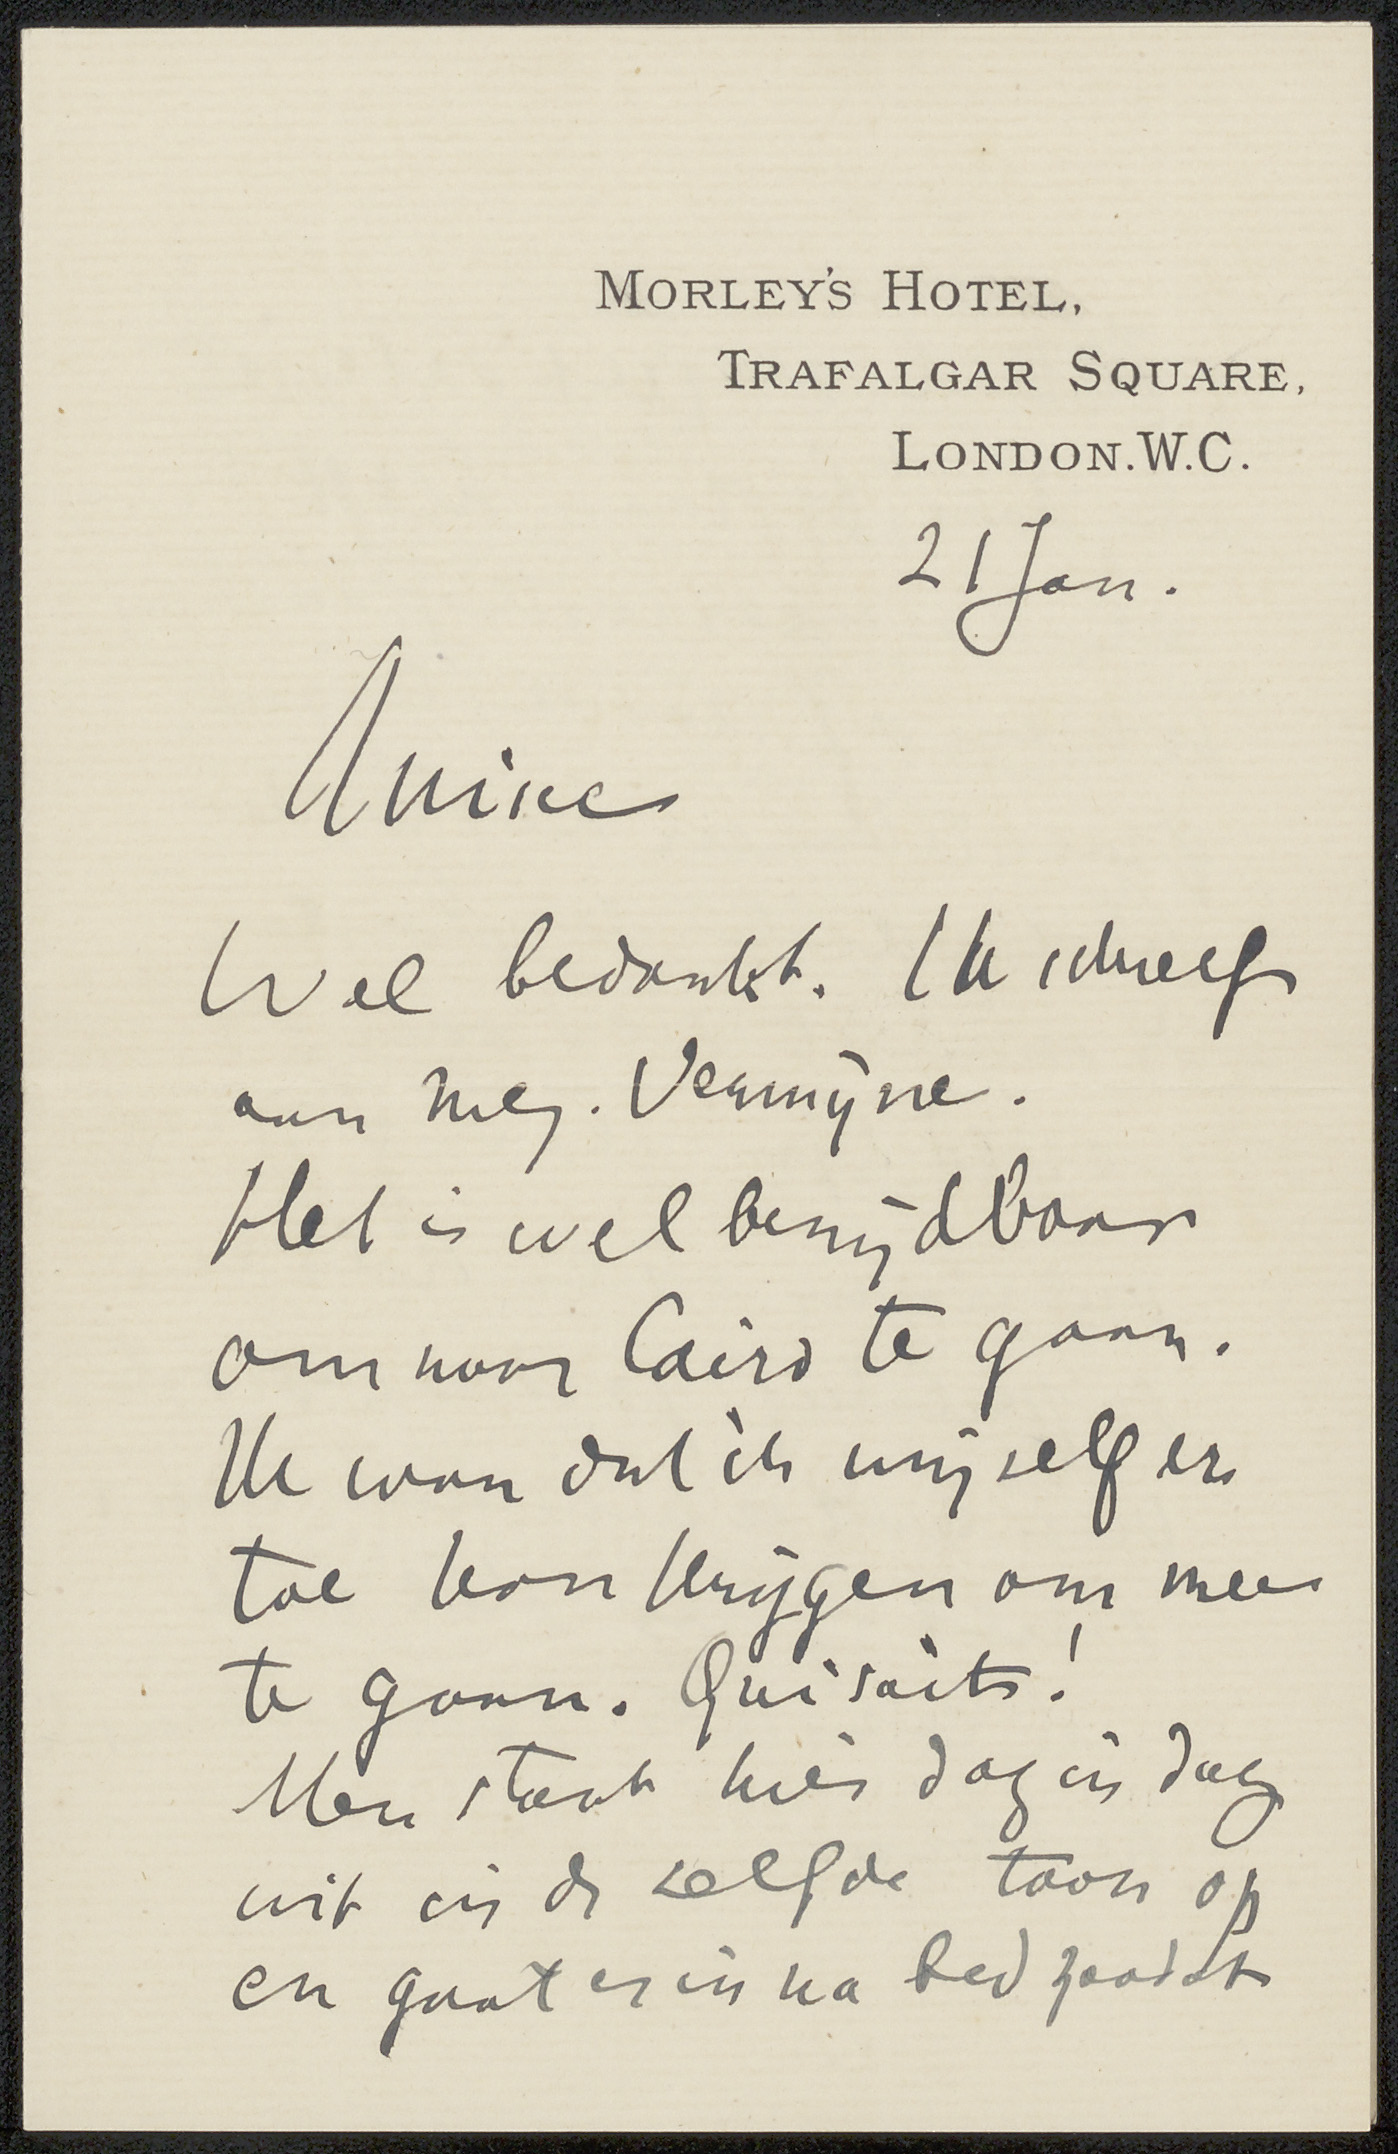 MORLEY'S HOTEL,
TRAFALGAR SQUARE,
LONDON.W.C.
21 Jan.
Amice
Wel bedankt. Ik schreef
aan Mej. Vermijne.
Het is wel benijdbaar
om naar Cairo te gaan.
Ik wou dat ik mijself er
toe kon krijgen om mee
te gaan. Qui sait!
Men staat hier dag in dag
uit in de selfde toon op
en gaat er in na bed zoodat